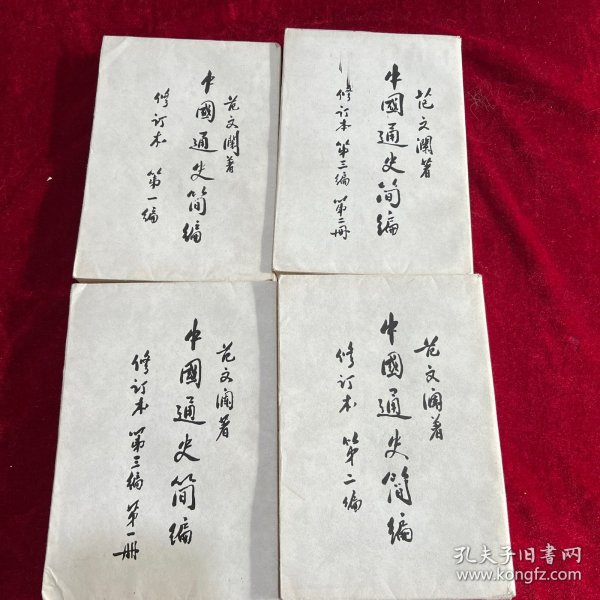 范文澜著
中國通史简编
修订本 第一编
范文澜著
中國通史简编
修订本 第三编 第二册
范文澜著
中國通史简编
修订本 第三编 第一册
范文澜著
中國通史简编
修订本 第二编
孔夫子旧书网
www.kongfz.com